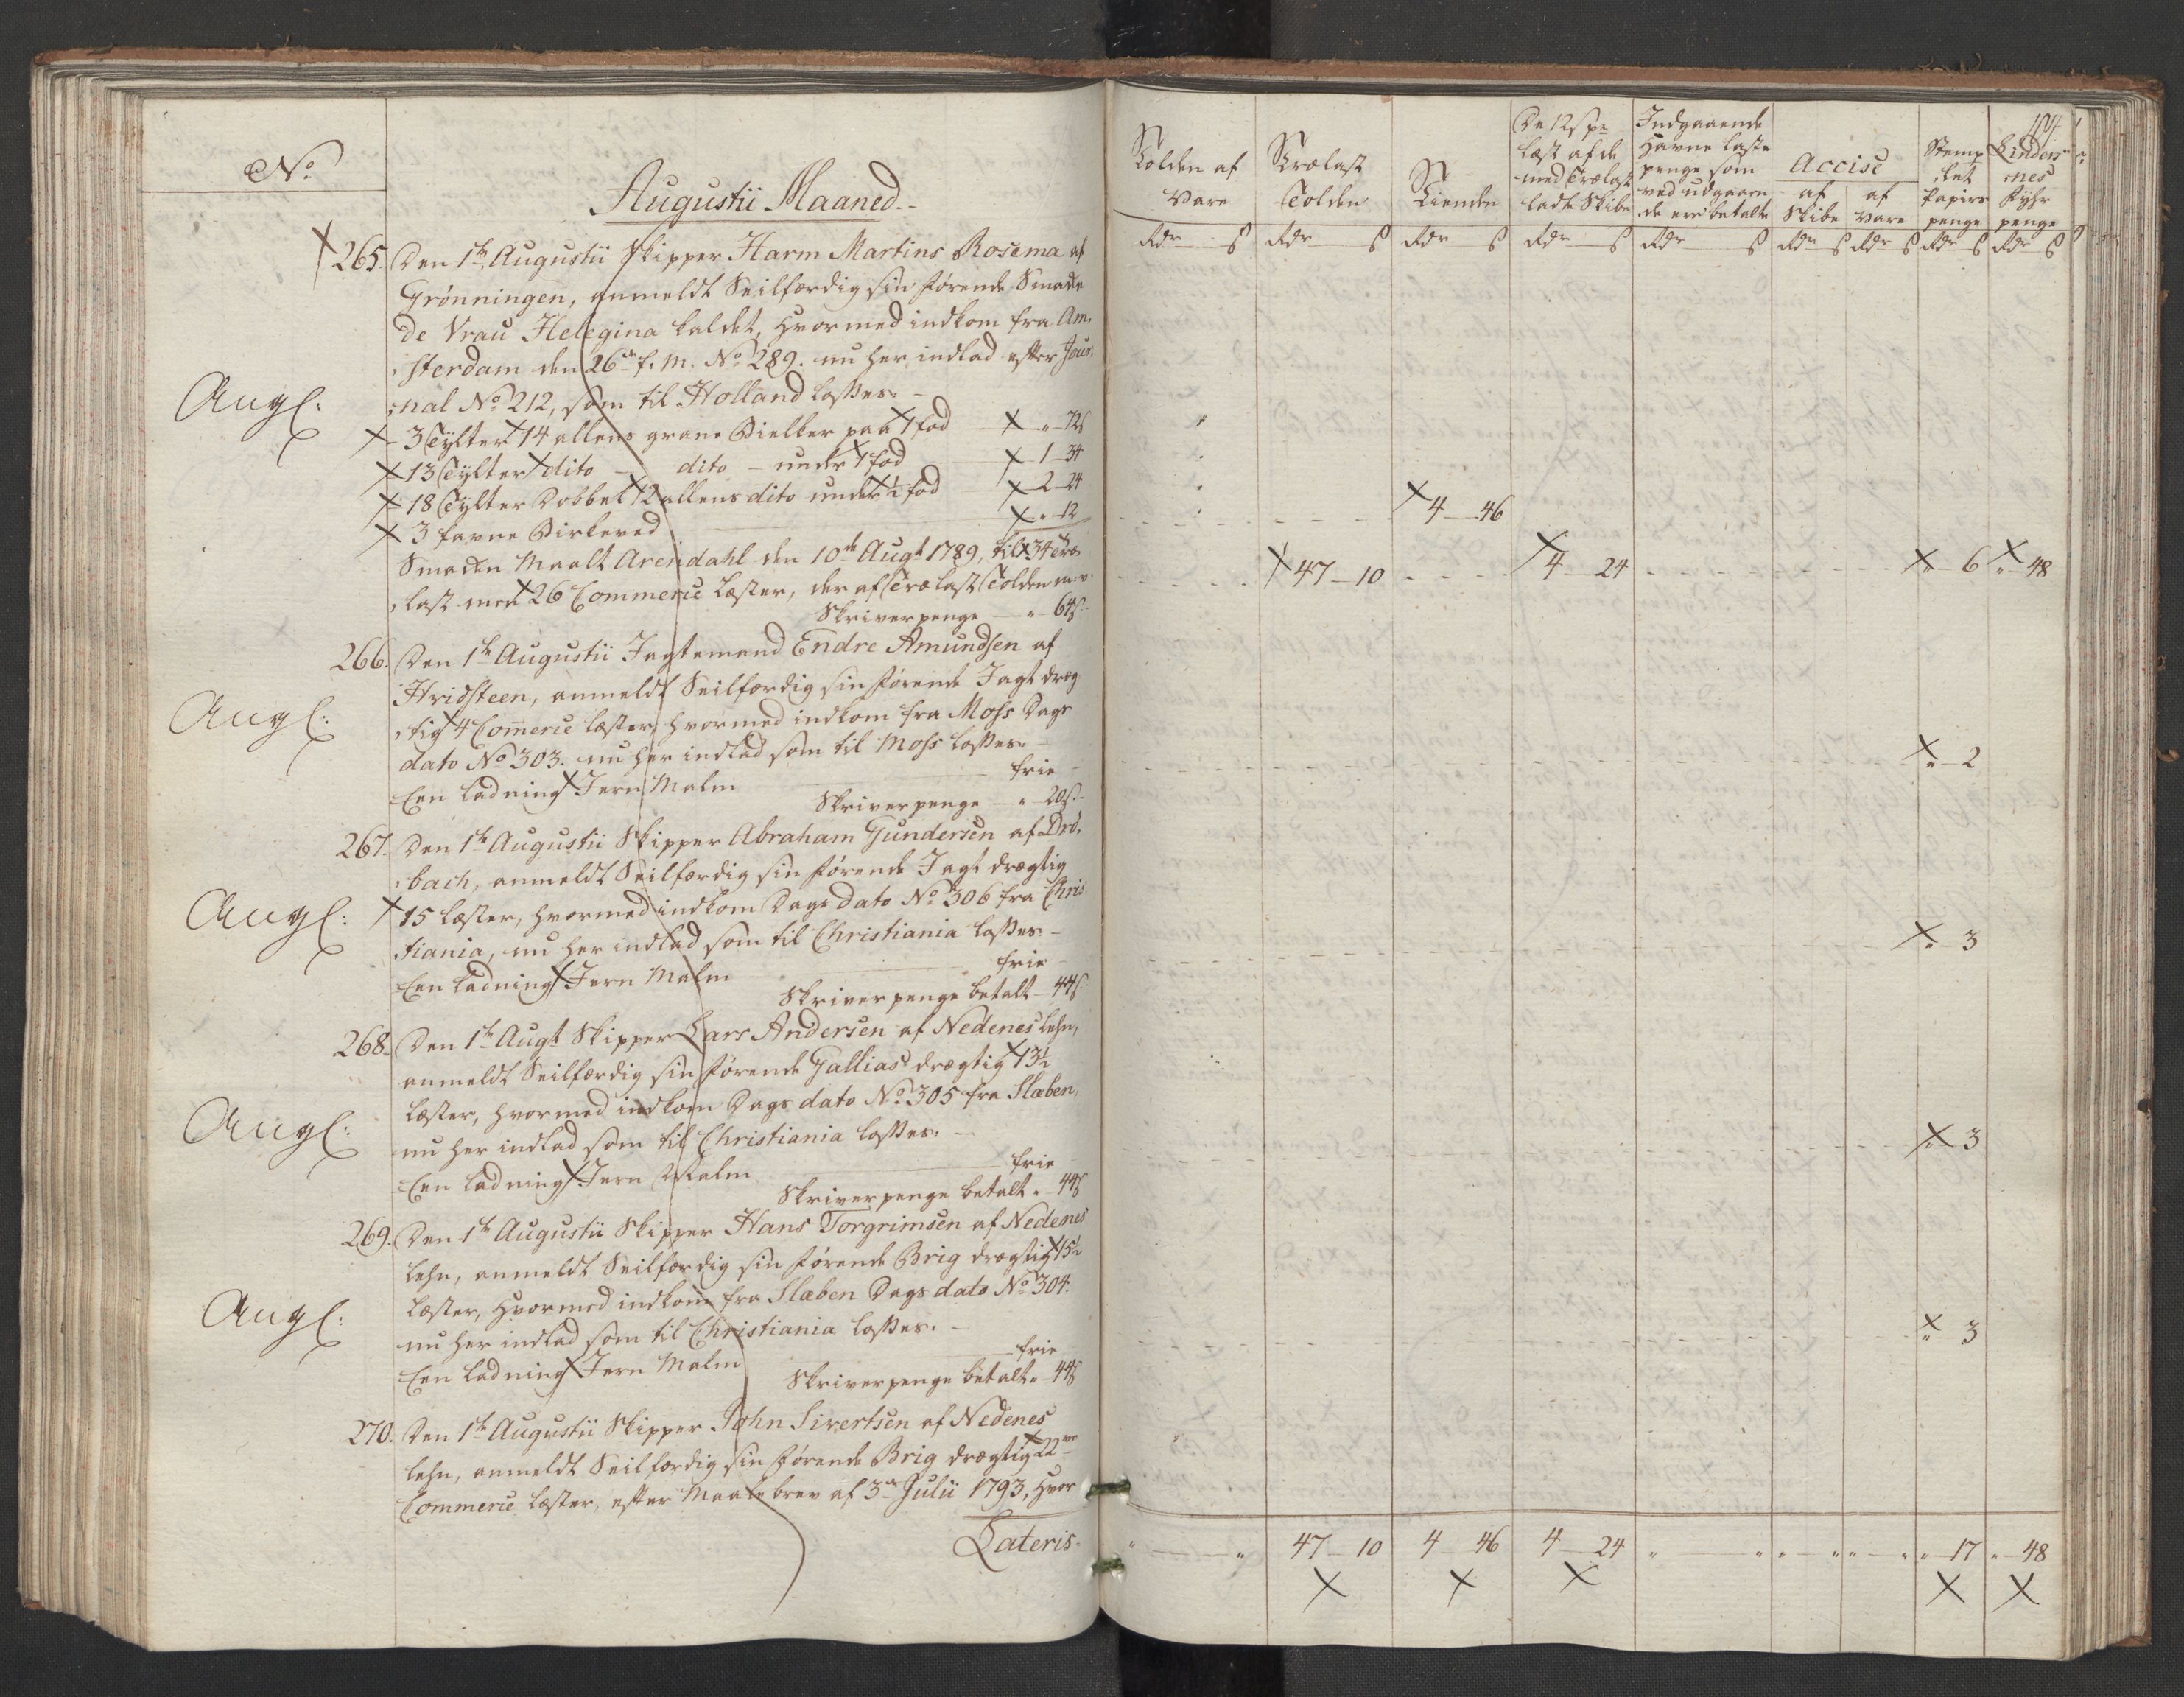 No
Augustii Maaned.
265. Den 1te Augustii Skipper Harm Martins Rosema af
Grønningen, anmeldt Seilfærdig sin førende Smakke
de Vrau Helegina kaldet, hvormed indkom fra Am,
,sterdam den 26de f. M. No 289. nu her indlad efter Jour,
Angl:
,nal No 212, som til Holland losses.
3 Tylter 14 allens grane Bielker paa 1 fod " 72 s
13 Tylter dito dito under 1 fod 1 34
18 Tylter Dobbel 12 allens dito under 1 fod 2 24
3 favne Birkeved " 12
4 46
Smakken Maalt Arendahl den 10de Augt 1789, til 34 Træ,
,last med 26 Commerce Læster, der af Trælast Tolden m.v.
47 10 4 24 " 6 " 48
Skriverpenge " 64 s
266. Den 1te Augustii Jagtemand Endre Amundsen af
Hvidsteen, anmeldt Seilfærdig sin førende Jagt dræg
Angl:
,tig 4 Commerce læster, hvormed indkom fra Moss Dags
dato No 303. nu her indlad som til Moss losses.
Een Ladning Jern Malm frie
" 2
Skriverpenge " 20 s.
267. Den 1te Augustii Skipper Abraham Gundersen af Drö,
,bach, anmeldt Seilfærdig sin førende Jagt drægtig
Angl:
15 læster, hvormed indkom Dags dato No 306 fra Chris
tiania, nu her indlad som til Christiania losses.
Een Ladning Jern Malm frie
" 3
Skriverpenge betalt 44 s.
268. Den 1te Augt Skipper Lars Andersen af Nedenes Lehn,
anmeldt Seilfærdig sin førende Gallias drægtig 13½
Læster, hvormed indkom Dags dato No 305 fra Slæben,
Angl:
nu her indlad som til Christiania losses.
Een Ladning Jern Malm frie
" 3
Skriverpenge betalt " 44 s
269. Den 1te Augustii Skipper Hans Torgrimsen af Nedenes
Lehn, anmeldt Seilfærdig sin førende Brig drægtig 15½
Læster, hvormed indkom fra Slæben Dags dato No 304.
Angl:
nu her indlad som til Christiania losses.
Een Ladning Jern Malm frie
" 3
Skriverpenge betalt " 44 s
270. Den 1te Augustii Skipper John Sivertsen af Nedenes
Lehn, anmeldt Seilfærdig sin førende Brig drægtig 22
Commerce Læster, efter Maalebrev af 3de Julii 1793, hvor
Lateris.
Tolden af
Vare
Trælast
Tolden
Tienden
De 12 s pr
Læst af de
med Trælast
ladte Skibe
Indgaaende
Havne Laste
penge som
ved udgaaen
,de ere betalte
Accise
af
Skibe
af
Vare
Stemp
,let
Papirs
penge
Linders
,nes
Fyhr
penge
Rdr s Rdr s Rdr s Rdr s Rdr s Rdr s Rdr s Rdr s Rdr s
" " 47 10 4 46 4 24 " " " " " " " 17 " 48